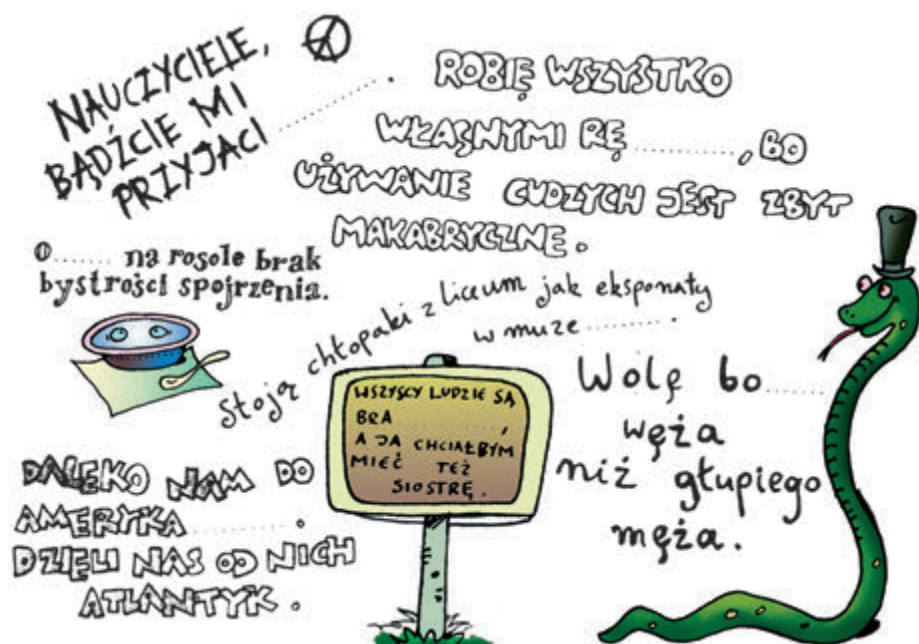 NAUCZYCIELE,
BĄDŹCIE MI
PRZYJACI ......... .
ROBIĘ WSZYSTKO
WŁASNYMI RĘ ........., BO
UŻYWANIE CUDZYCH JEST ZBYT
MAKABRYCZNE.
O...... na rosole brak
bystrości spojrzenia.
Stoją chłopaki z liceum jak eksponaty
w muze ......... .
WSZYSCY LUDZIE SĄ
BRA ........,
A JA CHCIAŁBYM
MIEĆ TEŻ
SIOSTRĘ.
Wolę bo......
węża
niż głupiego
męża.
DALEKO NAM DO
AMERYKA ......... .
DZIELI NAS OD NICH
ATLANTYK.